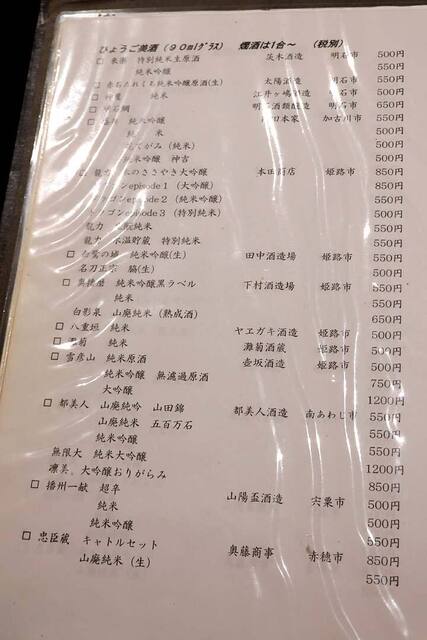 ひょうご美酒（９０mlｸﾞﾗｽ） 燗酒は1合～ （税別）
□ 来楽 特別純米主原酒 茨木酒造 明石市 500円
純米吟醸 550円
□ 赤石たれくち純米吟醸原酒(生) 太陽酒造 明石市 550円
□ 神鷹 純米 江井ヶ嶋酒造 明石市 500円
□ 明石鯛 明石酒類醸造 明石市 650円
純米大吟醸 岡田本家 加古川市 550円
純 米 500円
てがみ (純米) 500円
純米吟醸 神吉 500円
□ 龍力 米のささやき大吟醸 本田商店 姫路市 850円
ドラゴンepisode１ (大吟醸) 850円
ドラゴンepisode２ (純米吟醸) 550円
ドラゴンepisode３ (特別純米) 500円
龍力 純米 550円
龍力 氷温貯蔵 特別純米 550円
□ 白鷺の城 純米吟醸(生) 田中酒造場 姫路市 550円
名刀正宗 脇(生) 500円
□ 奥播磨 純米吟醸黒ラベル 下村酒造場 姫路市 550円
純米 550円
白影泉 山廃純米 (熟成酒) 650円
□ 八重垣 純米 ヤヱガキ酒造 姫路市 500円
□ 灘菊 純米 灘菊酒蔵 姫路市 500円
□ 雪彦山 純米原酒 壺坂酒造 姫路市 500円
純米吟醸 無濾過原酒 750円
大吟醸 1200円
□ 都美人 山廃純吟 山田錦 都美人酒造 南あわじ市 550円
山廃純米 五百万石 550円
純米吟醸 550円
無限大 純米大吟醸 550円
凛美。大吟醸おりがらみ 1200円
□ 播州一献 超辛 山陽盃酒造 宍粟市 850円
純米 500円
純米吟醸 500円
□ 忠臣蔵 キャトルセット 奥藤商事 赤穂市 550円
山廃純米（生） 850円
550円